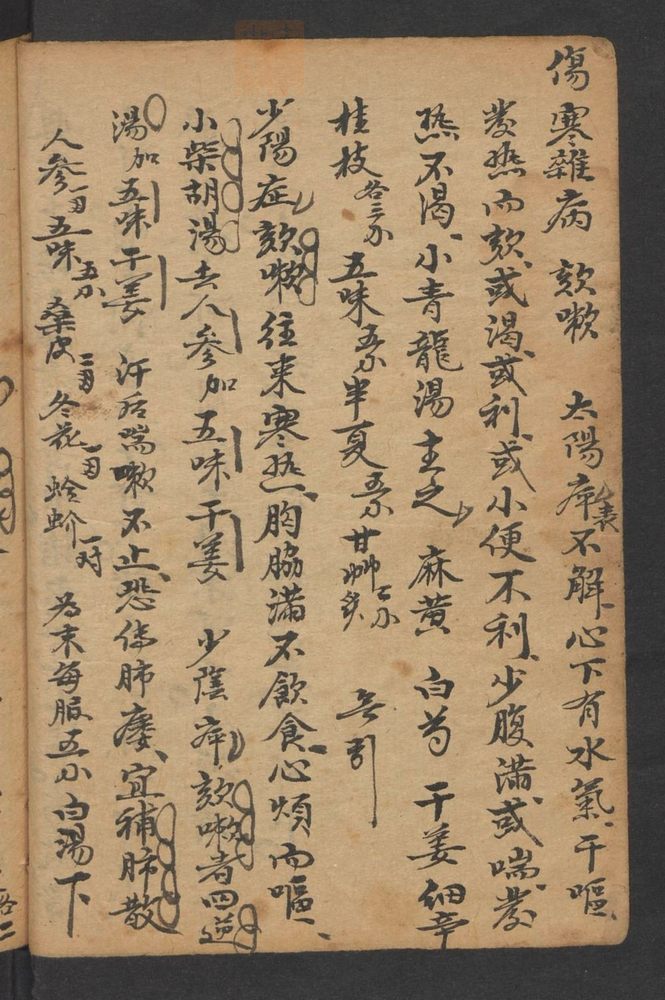 傷寒雜病 欬嗽 太陽病表不解、心下有水氣、干嘔、
發热而欬、或渴、或利、或小便不利、少腹滿、或喘、發
热不渴、小青龍湯主之 麻黄 白芍 干姜 細辛
桂枝各三分 五味五分 半夏五分 甘艸炙二分 無引
少陽症欬嗽往来寒热、胸脇滿不飲食、心煩而嘔、
小柴胡湯去人參加五味干姜 少陰病欬嗽者四逆
湯加五味干姜 汗后喘嗽不止、恐傳肺痿、宜補肺散
人參一両 五味五分 桑皮二両 冬花一両 蛤蚧一对 為末每服五分白湯下